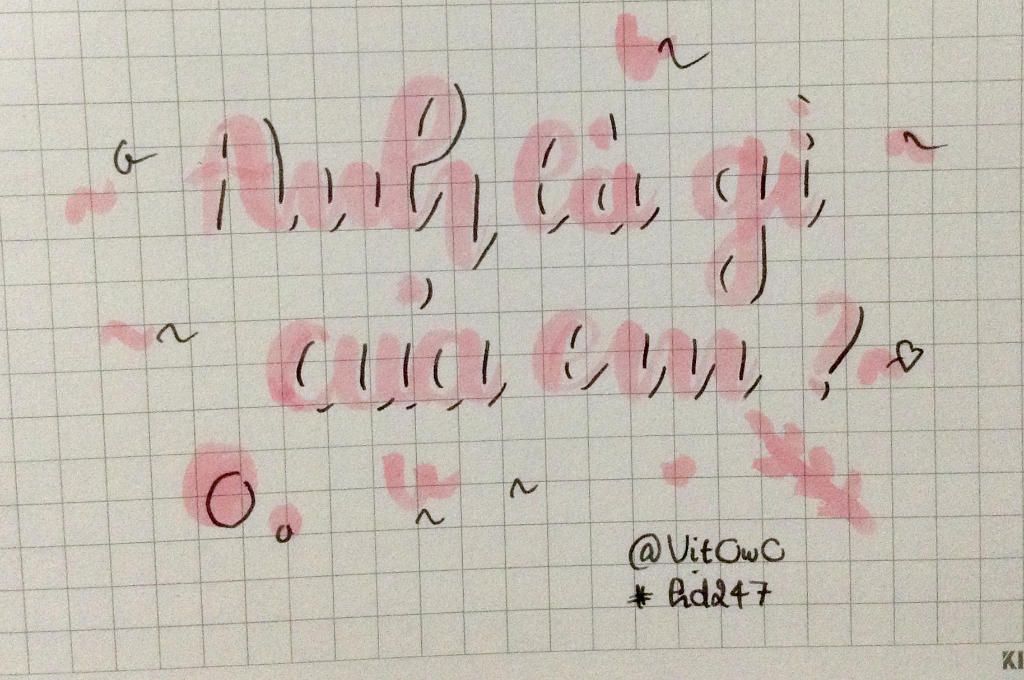 Anh là gì
của em ?
@VitOwO
* hid247
KI